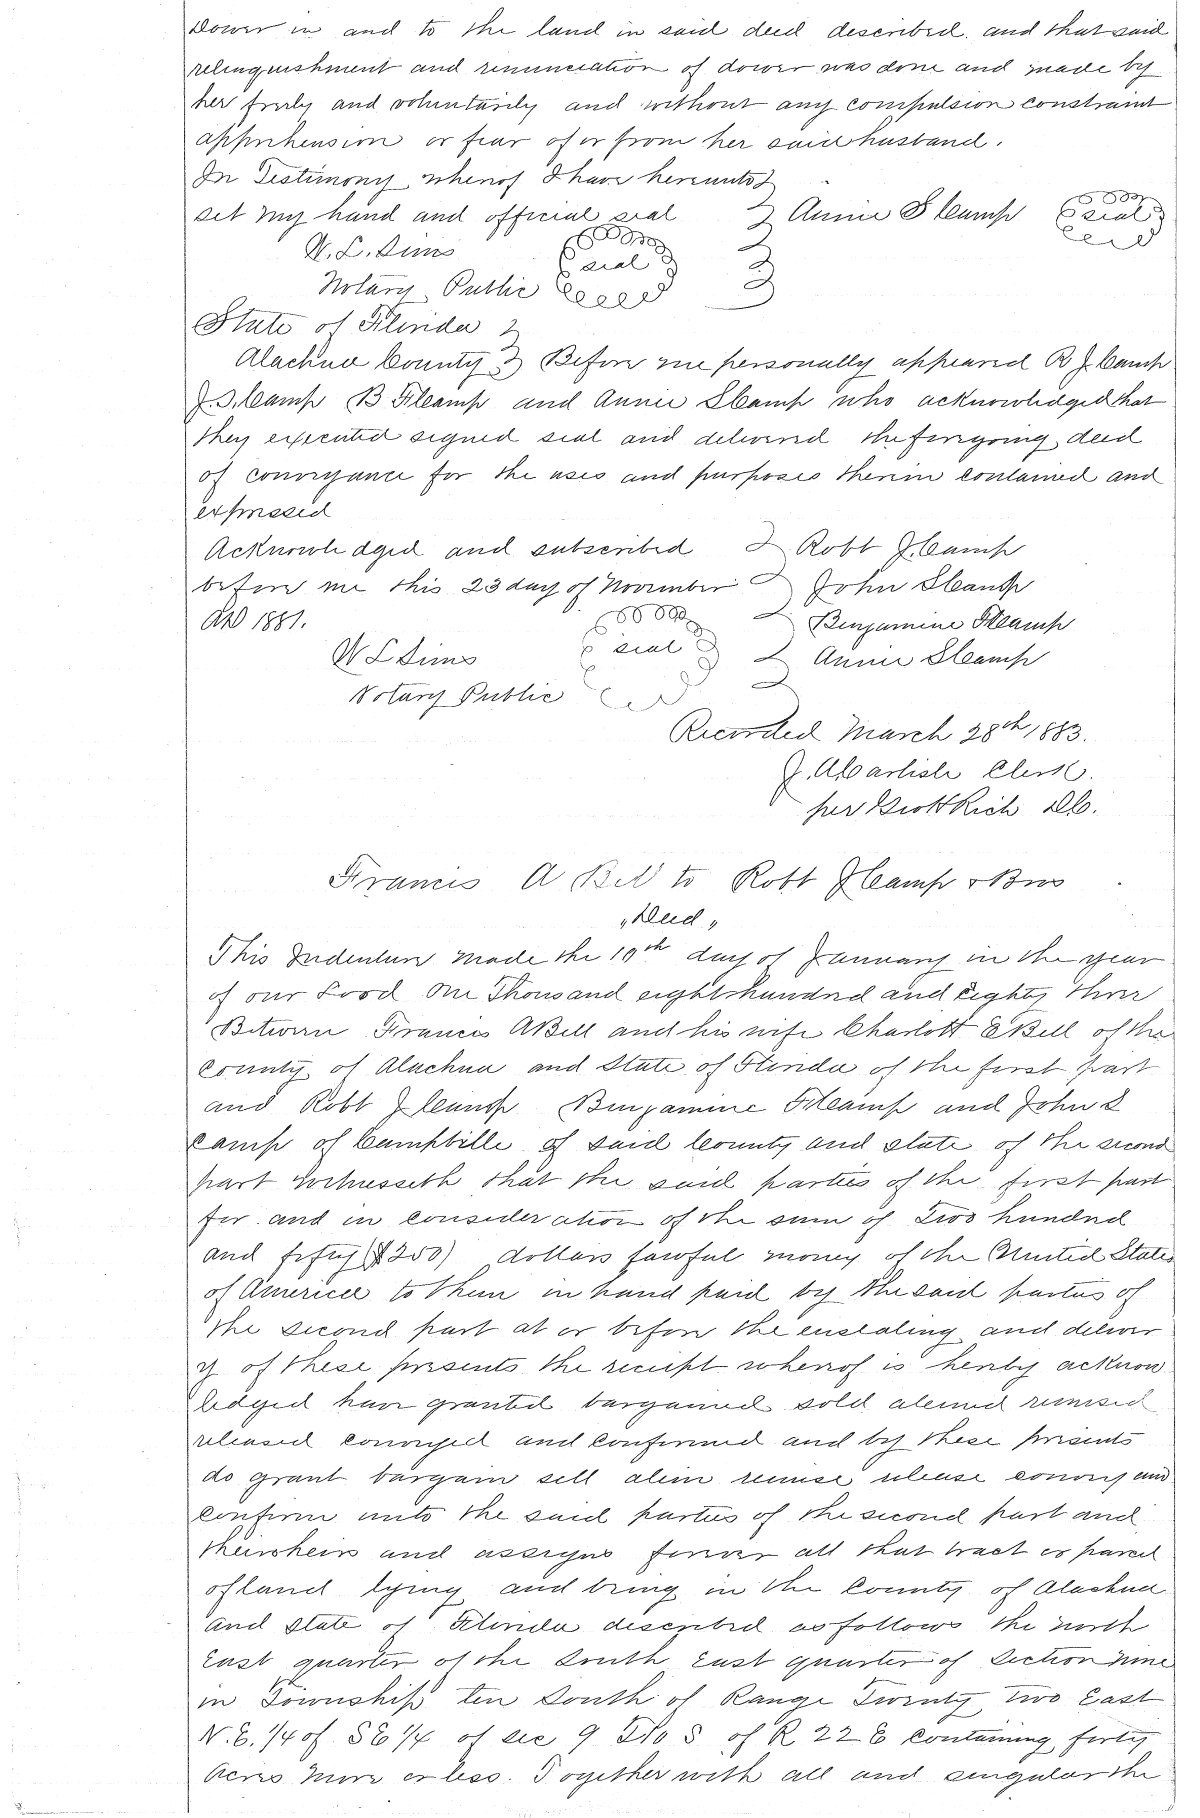 Dower in and to the land in said deed described. and that said
relinquishment and renunciation of dower was done and made by
her freely and voluntarily and without any compulsion constraint
apprehension or fear of or from her said husband.
In Testimony whereof I have hereunto
set my hand and official seal Annie S Camp seal
W. L. Sims seal
Notary Public
State of Florida
Alachua County Before me personally appeared R J Camp
J. S. Camp B F Camp and Annie S Camp who acknowledged that
they executed signed seal and delivered the foregoing deed
of conveyance for the uses and purposes therein contained and
expressed
Acknowledged and subscribed Robt J. Camp
before me this 23 day of November John S Camp
AD 1881. Benjamine F Camp
W L Sims seal Annie S Camp
Notary Public
Recorded March 28th 1883.
J. A Carlisle Clerk.
per Rich D C.
Francis A Bell to Robt J Camp & Bros
"Deed"
This Indenture made the 10th day of January in the year
of our Lord One Thousand eight hundred and Eighty Three
Between Francis A Bell and his wife Charlott E Bell of the
County of Alachua and State of Florida of the first part
and Robt J Camp Benjamine F Camp and John S
Camp of Campbille of said County and state of the second
part Witnesseth that the said parties of the first part
for and in consideration of the sum of Two hundred
and fifty ($250) dollars lawful money of the United States
of America to them in hand paid by the said parties of
the second part at or before the ensealing and deliver
y of these presents the receipt whereof is hereby acknow
ledged have granted bargained sold aliened remised
released conveyed and confirmed and by these presents
do grant bargain sell alien remise release convey and
Confirm unto the said parties of the second part and
their heirs and assigns forever all that tract or parcel
of land lying and being in the County of Alachua
and State of Florida described as follows the north
East quarter of the South East quarter of Section nine
in Township ten South of Range Twenty two East
N.E. 1/4 of SE 1/4 of sec 9 T10 S of R 22 E containing forty
Acres more or less. Together with all and singular the